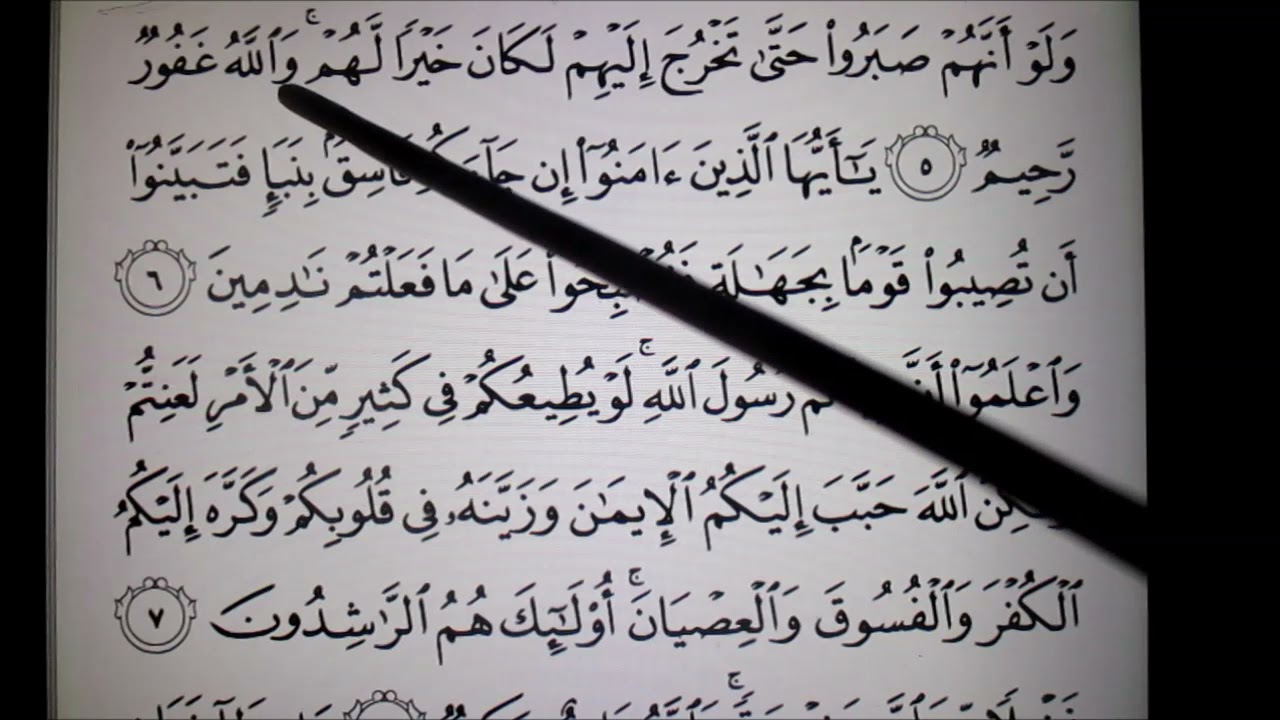 وَلَوْ أَنَّهُمْ صَبَرُوا۟ حَتَّىٰ تَخْرُجَ إِلَيْهِمْ لَكَانَ خَيْرًا لَّهُمْ ۚ وَٱللَّهُ غَفُورٌ
رَّحِيمٌ ٥ يَـٰٓأَيُّهَا ٱلَّذِينَ ءَامَنُوٓا۟ إِن بِنَبَإٍ فَتَبَيَّنُوٓا۟
أَن تُصِيبُوا۟ قَوْمًۢا بِجَهَـٰلَةٍ عَلَىٰ مَا فَعَلْتُمْ نَـٰدِمِينَ ٦
وَٱعْلَمُوٓا۟ رَسُولَ ٱللَّهِ ۚ لَوْ يُطِيعُكُمْ فِى كَثِيرٍ مِّنَ ٱلْأَمْرِ لَعَنِتُّمْ
ٱللَّهَ حَبَّبَ إِلَيْكُمُ ٱلْإِيمَـٰنَ وَزَيَّنَهُۥ فِى قُلُوبِكُمْ وَكَرَّهَ إِلَيْكُمُ
ٱلْكُفْرَ وَٱلْفُسُوقَ وَٱلْعِصْيَانَ ۚ أُو۟لَـٰٓئِكَ هُمُ ٱلرَّٰشِدُونَ ٧